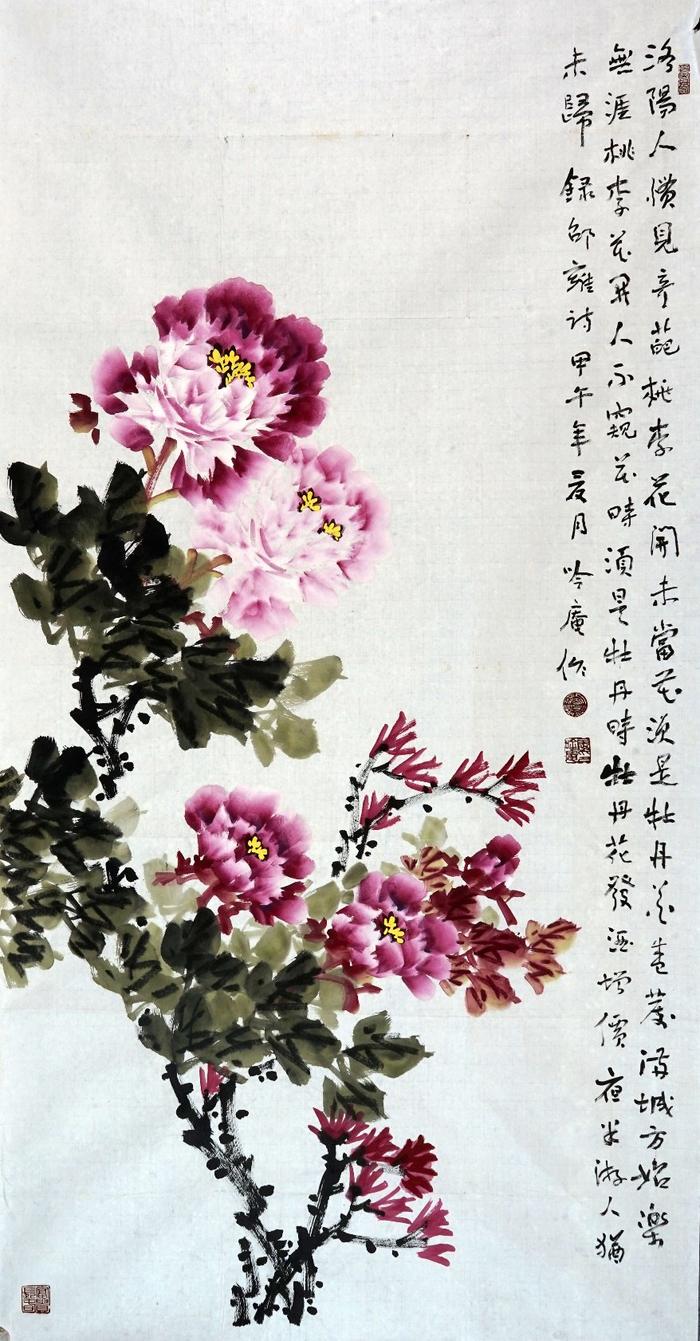 洛陽人慣見奇葩桃李花開未當花須是牡丹花盛發滿城方始樂
無涯桃李花開人不窺花時須是牡丹時牡丹花發酒增價夜半游人猶
未歸 錄邵雍詩 甲午年夏月 吟庵作